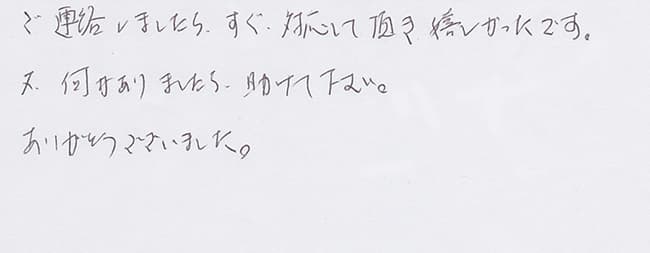 ご連絡しましたら、すぐ、対応して頂き嬉しかったです。
又、何かありましたら、助けて下さい。
ありがとうございました。